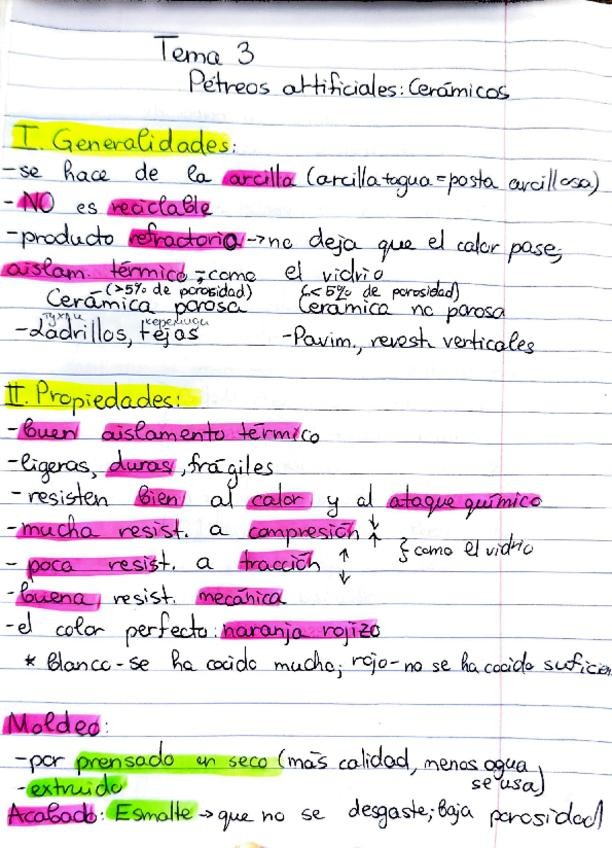 Tema 3
Pétreos artificiales: Cerámicos
I. Generalidades:
-se hace de la arcilla (arcilla+agua=pasta arcillosa)
-NO es reciclable
-producto refractorio→no deja que el calor pase;
aislam. térmico; como el vidrio
-(>5% de porosidad) (<5% de porosidad)
Cerámica porosa Cerámica no porosa
-Ladrillos, tejas -Pavim., revest. verticales
II. Propiedades:
-buen aislamento térmico
-ligeras, duras, frágiles
-resisten bien al calor y al ataque químico
-mucha resist. a compresión ↓↑
} como el vidrio
-poca resist. a tracción ↑↓
-buena resist. mecánica
-el color perfecto: naranja rojizo
* Blanco-se ha cocido mucho; rojo-no se ha cocido suficien
Moldeo:
-por prensado en seco (más calidad, menos agua
se usa)
-extruido
Acabado: Esmalte → que no se desgaste; baja porosidad